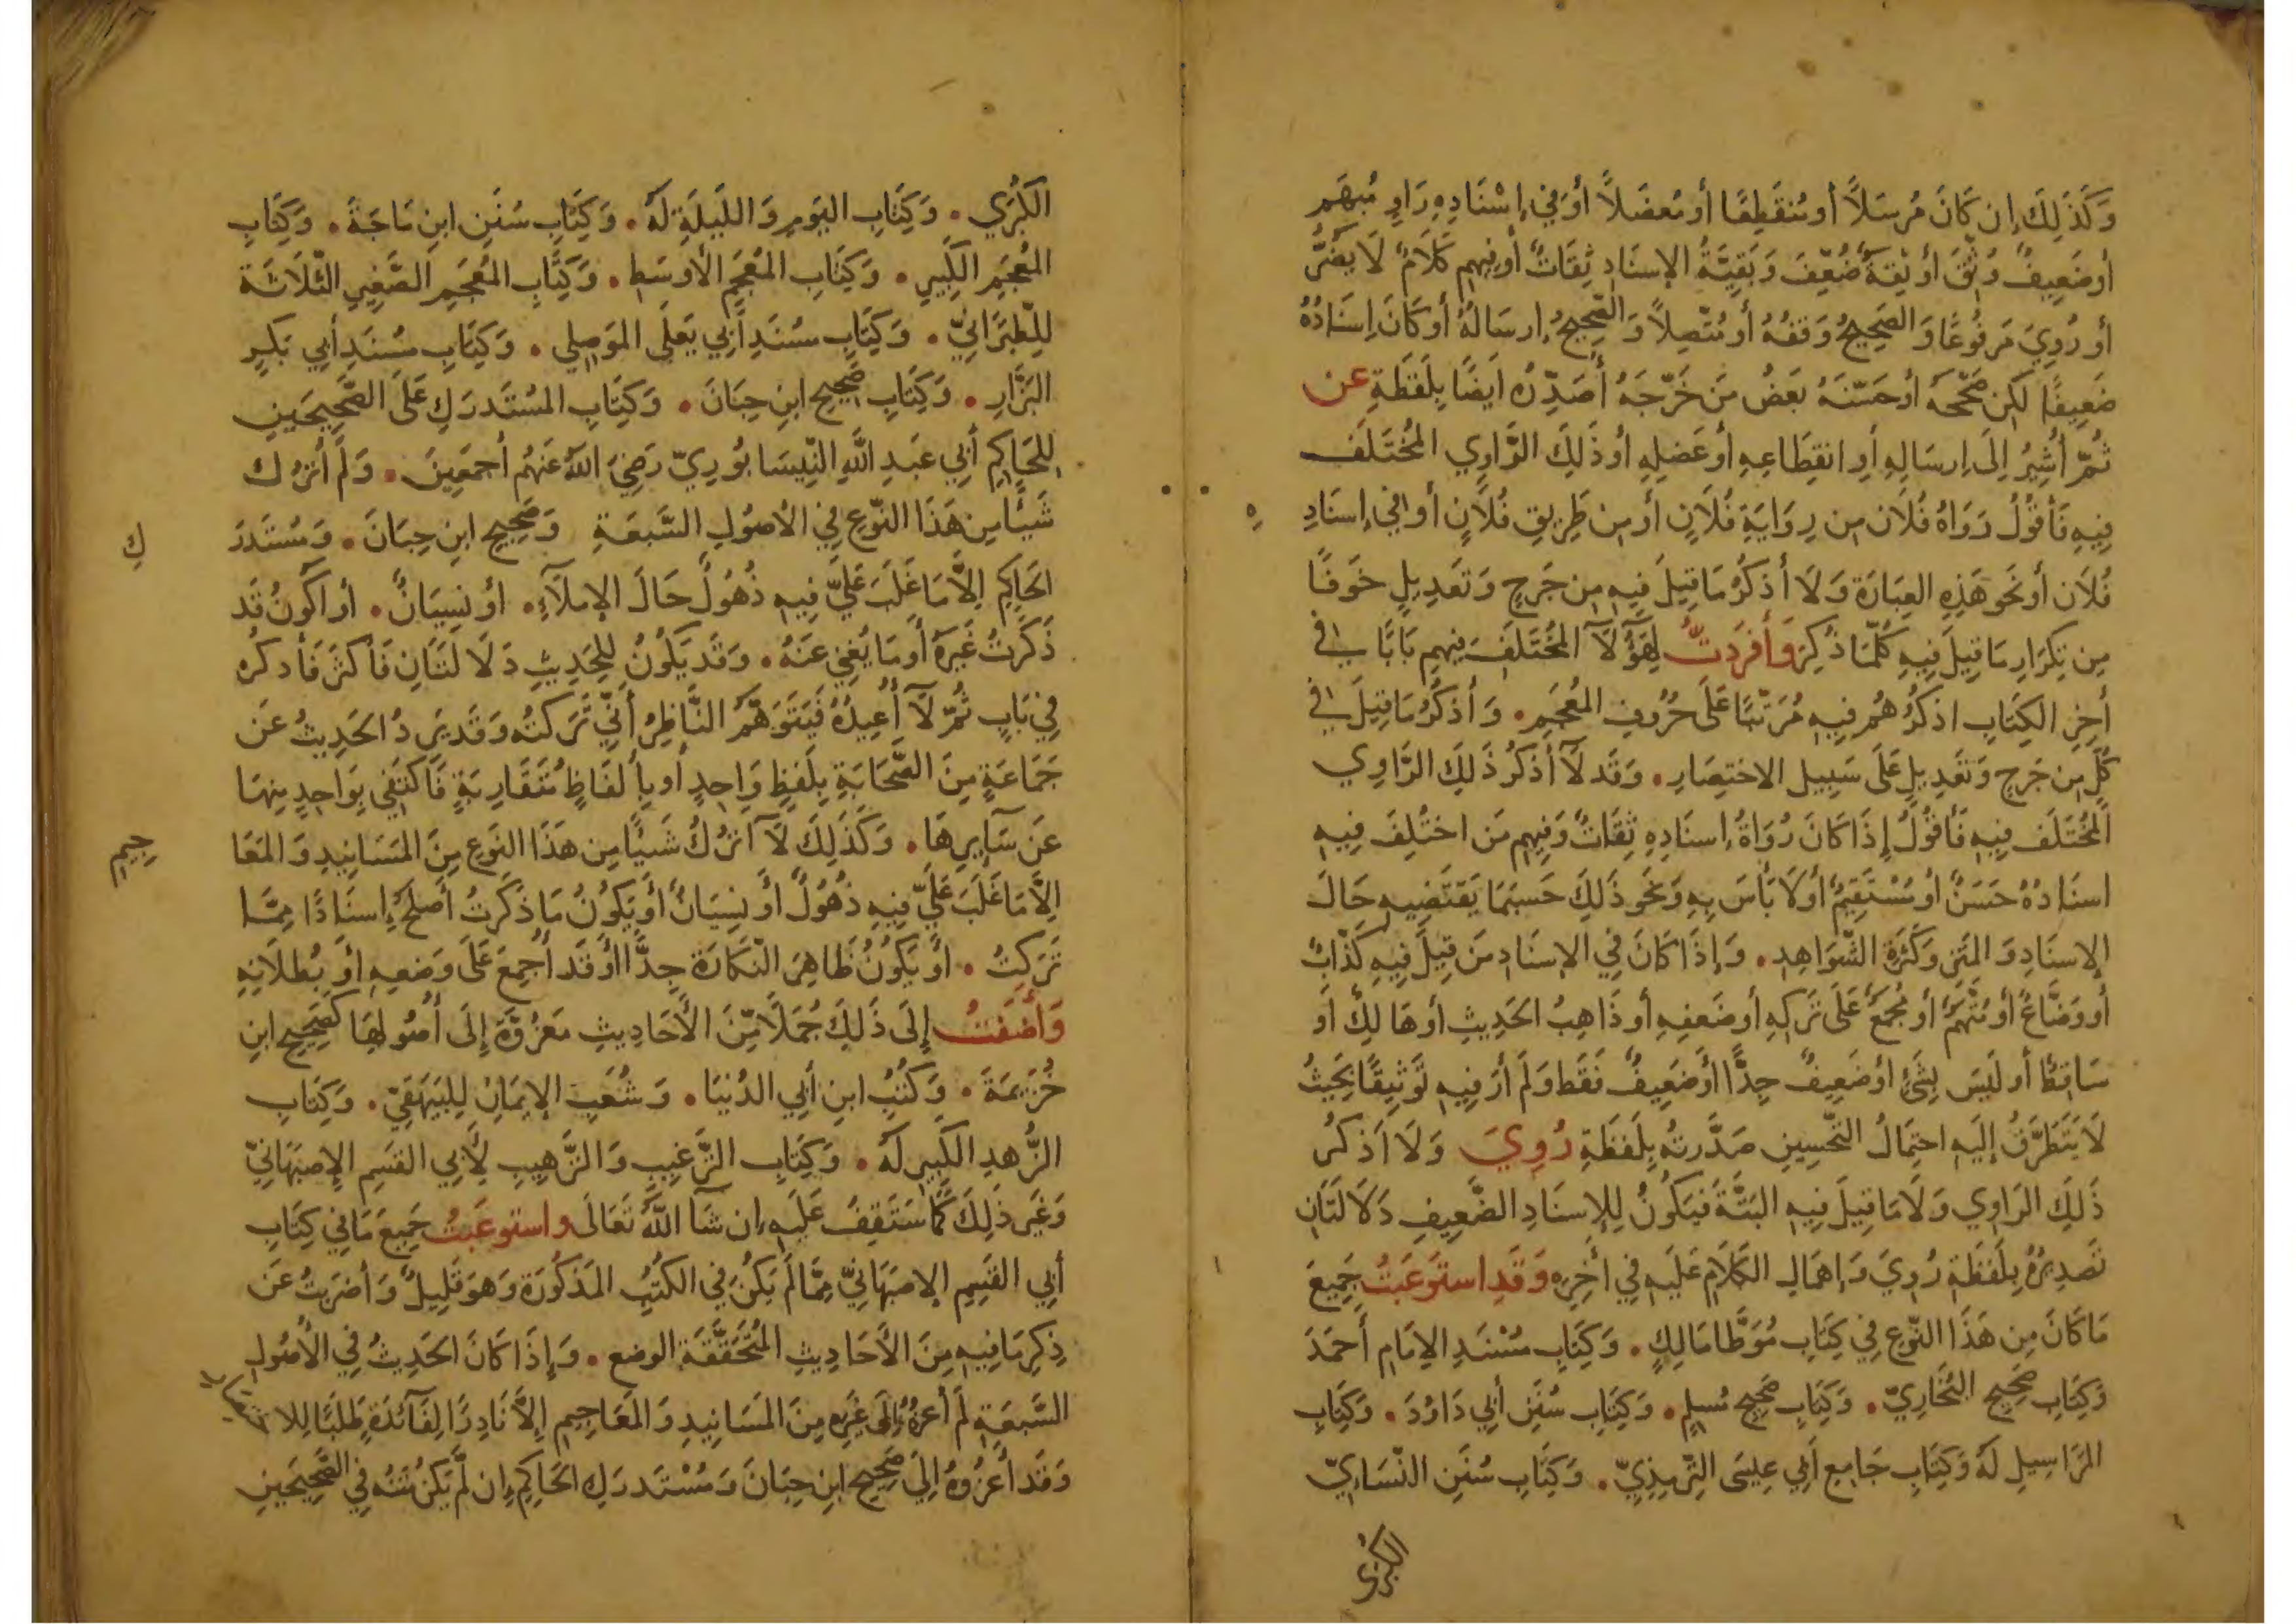 وَكَذَلِكَ إِن كَانَ مُرسَلاً أو مُنقَطِعًا أو مُعضَلاً أوَفي إسْنَادِهِ رَاوٍ مُبهَم
أو ضَعِيفٌ وُثِّقَ أو ثِقَةٌ ضُعِّفَ وَبَقِيَّةُ الإسنَادِ ثِقَاتٌ أو فِيهِم كَلَامٌ لَا يَضُرُّ
أو رُوِيَ مَرفُوعًا وَالصَحِيحُ وَقفُهُ أو مُتَّصِلاً وَالصَّحِيحُ إرسَالُهُ أو كَانَ إسنَادُهُ
ضَعِيفًا لَكِن صَحَّحَهُ أو حَسَّنَهُ بَعضُ مَن خَرَّجَهُ أُصَدِّرُه أيضًا بِلَفظَةِ عن
ثُمَّ أُشِيرُ إلَى إرسَالِهِ أوِ انقِطَاعِهِ أو عَضلِهِ أو ذَلِكَ الرَّاوِي المُختَلَف
فِيهِ فَأقُولُ رَوَاهُ فُلَان مِن رِوَايَةِ فُلَانٍ أو مِن طَرِيقِ فُلَانٍ أو في إسنَادِ ه
فُلَان أو نَحَو هَذِهِ العِبَارَة وَلَا أذكُرُ مَا قِيلَ فِيهِ مِن جَرحٍ وَتَعدِيلٍ خَوفًا
مِن تِكرَارِ مَا قِيلَ فِيهِ كُلَّمَا ذُكِرَ وَأفرَدتُّ لِهَؤُلَآ المُختَلَفَ فِيهِم بَابًا في
أخِرِ الكِتَابِ اذكُرُهُم فِيهِ مُرَتَّبًا عَلَى حُرُوفِ المُعجَمِ . وَأذكُرُ مَا قِيلَ في
كُلٍّ مِن جَرحٍ وَتَعدِيلٍ عَلَى سَبِيلِ الاختِصَارِ . وَقَد لَآ أذكُرُ ذَلِكَ الرَّاوِي
المُختَلَف فِيهِ فَأقُولُ إذَا كَانَ رُوَاةُ إسنَادِهِ ثِقَاتٌ وَفِيهِم مَن اختُلِفَ فِيهِ
اسنَادُهُ حَسَنٌ أو مُسْتَقِيمٌ أو لَا بَأسَ بِهِ وَنَحَو ذَلِكَ حَسبَمَا يَقتَضِيهِ حَالُ
الإسنَادِ وَالمَتنِ وَكَثرَةِ الشَّوَاهِدِ . وَإذَا كَانَ في الإسنَادِ مَن قِيلَ فِيهِ كَذَّابٌ
أو وَضَّاعٌ أو مُتَّهَمٌ أو مُجمَعٌ عَلَى تَركِهِ أو ضَعفِهِ أو ذَاهِبُ الحَدِيثِ أو هَالِكٌ أو
سَاقِطٌ أو لَيسَ بِشَيْءٍ أو ضَعِيفٌ جِدًّا أو ضَعِيفٌ فَقَط وَلَم أرَ فِيهِ تَوثِيقًا بِحَيثُ
لَا يَتَطَرَّقُ إلَيهِ احتِمَالُ التَّحسِينِ صَدَّرتُه بِلَفظَةِ رُوِيَ وَلَا اَذكُرُ
ذَلِكَ الرَاوِي وَلَا مَا قِيلَ فِيهِ البَتَّةَ فَيَكُونُ لِلإسنَادِ الضَّعِيفِ دَلَالَتَانِ
تَصدِيرُهُ بِلَفظَةِ رُوِيَ وَإهمَالِ الكَلَامِ عَلَيهِ في أخِرِهِ وَقَدِ استَوعَبتُ جَمِيعَ
مَا كَانَ مِن هَذَا النَّوعِ في كِتَابِ مُوَطَّا مَالِكٍ . وَكِتَابِ مُسْنَدِ الإمَامِ أحمَدَ
وَكِتَابِ صَحِيحِ البُخَارِيّ . وَكِتَابِ صَحِيحِ مُسلِمٍ . وَكِتَابِ سُنَنِ أبِي دَاوُدَ . وَكِتَابِ
المَرَاسِيلِ لَهُ وَكِتَابِ جَامِعِ أبِي عِيسَى التِّرمِذِيّ . وَكِتَابِ سُنَنِ النَّسَاءِيّ
الكبرى
الكُبرَي . وَكِتَابِ اليَومِ وَاللَّيلَةِ لَهُ . وَكِتَابِ سُنَنِ ابنِ مَاجَةَ . وَكِتَابِ
المُعجَمِ الكَبِيرِ . وَكِتَابِ المُعجَمِ الأوسَطِ . وَكِتَابِ المُعجَمِ الصَّغِيرِ الثَّلَاثَة
لِلطَبَرَانِيّ . وَكِتَابِ مسُنَدِ أبِي يَعلَى المَوصِلي . وَكِتَابِ مسُنَدِ أبي بَكرٍ
البَزَّارِ . وَكِتَابِ صَحِيحِ ابنِ حِبَانَ . وَكِتَابِ المُستَدرَكِ عَلَى الصَّحِيحَينِ
لِلحَاكِمِ أبِي عَبدِ اللَّهِ النَّيسَابُورِيّ رَضِيَ اللَّهُ عَنهُم أجمَعِينَ . وَلَم أترُك
شَيئًا مِن هَذَا النَّوعِ فِي الأصُولِ السَّبعَةِ وَصَحِيحِ ابنِ حِبَانَ . وَمُستَدرَ كِ
الحَاكِمِ إلاَّ مَا غَلَبَ عَلَيَّ فِيهِ ذُهُولٌ حَالَ الإملَآءِ . أو نِسيَانٌ . أو أكُونُ قَد
ذَكَرتُ غَيرَهُ أو مَا يُغنِي عَنهُ . وَقَد يَكُونُ لِلحَدِيثِ دَلَالَتَانِ فَأكثَرَ فَأذكُره
فِي بَابٍ ثُمَّ لَآ أُعِيدُهُ فَيَتَوَهَّمُ النَّاظِرُ أنِّي تَرَكتُه وَقَد يَرِدُ الحَدِيثُ عَن
جَمَاعَةٍ مِنَ الصَّحَابَةِ بِلَفظٍ وَاحِدٍ أو بِألفَاظٍ مُتَقَارِبَةٍ فَأكتَفِي بِوَاحِدٍ مِنهَا
عَن سَآيِرِهَا . وَكَذَلِكَ لَآ اترُكُ شَيئًا مِن هَذَا النَوعِ مِنَ المَسَانِيدِ وَالمَعَا جِيمِ
إلاَّ مَا غَلَبَ عَلَيَّ فِيهِ ذُهُولٌ أو نِسيَانٌ أو يَكُونُ مَا ذَكَرتُ أصلَحُ إسنَادًا مِمَّا
تَرَكتُ . أو يَكُونُ ظَاهِرَ النَّكَارَة جِدًّا أو قَد أُجمِعَ عَلَى وَضعِهِ أو بُطلَانِهِ
وَأضَفتُ إلَى ذَلِكَ جُمَلًا مِّنَ الأحَادِيثِ مَعزُوَّةً إلَى أُصُولِهَا كَصَحِيحِ ابنِ
خُزَيمَةَ . وَكُتُبِ ابنِ أبِي الدُنيَا . وَشُعَبِ الإيمَانِ لِلبَيهَقِيّ . وَكِتَابِ
الزُّهدِ الكَبِيرِ لَهُ . وَكِتَابِ التَّرغِيبِ وَالتَّرهِيبِ لِأبِي القَسِمِ الإصبَهَانِيّ
وَغَيرِ ذَلِكَ كَمَا سَتَقِفُ عَلَيهِ إن شَآ اللَّهُ تَعَالَى واستوعَبتُ جَمِيعَ مَا فِي كِتَابِ
أبِي القَسِمِ الإصبَهَانِيّ مِمَّا لَم يَكُن في الكُتُبِ المَذكُورَة وَهوَ قَلِيلٌ وَأضرَبتُ عَن
ذِكرِ مَا فِيهِ مِنَ الأَحَادِيثِ المُتَحَقَّقَةِ الوضعِ . وَإذَا كَانَ الحَدِيثُ فِي الأُصُولِ
السَّبعَةِ لَم أعزُهُ إلَى غَيرِهِ مِنَ المَسَانِيدِ وَالمَعَاجِيمِ إلاَّ نَادِرًا لِفَآئدَةٍ طَلَبًا لِلا
وَقَد أعزُوهُ إلَي صَحِيحِ ابنِ حِبَانَ وَمُسْتَدرَكِ الحَاكِمِ إن لَّم يَكُن مَتنُه فِي الصَّحِيحَينِ